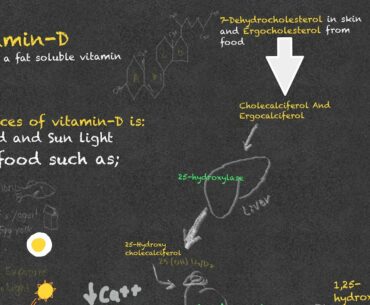 amin-D
a fat soluble vitamin
ces of vitamin-D is:
d and Sun light
food such as;
7-Dehydrocholesterol in skin
and Ergocholesterol from
food
Cholecalciferol And
Ergocalciferol
25-hydroxylase
Liver
25-Hydroxy
cholecalciferol
↓Ca++
1,25-
hydrox